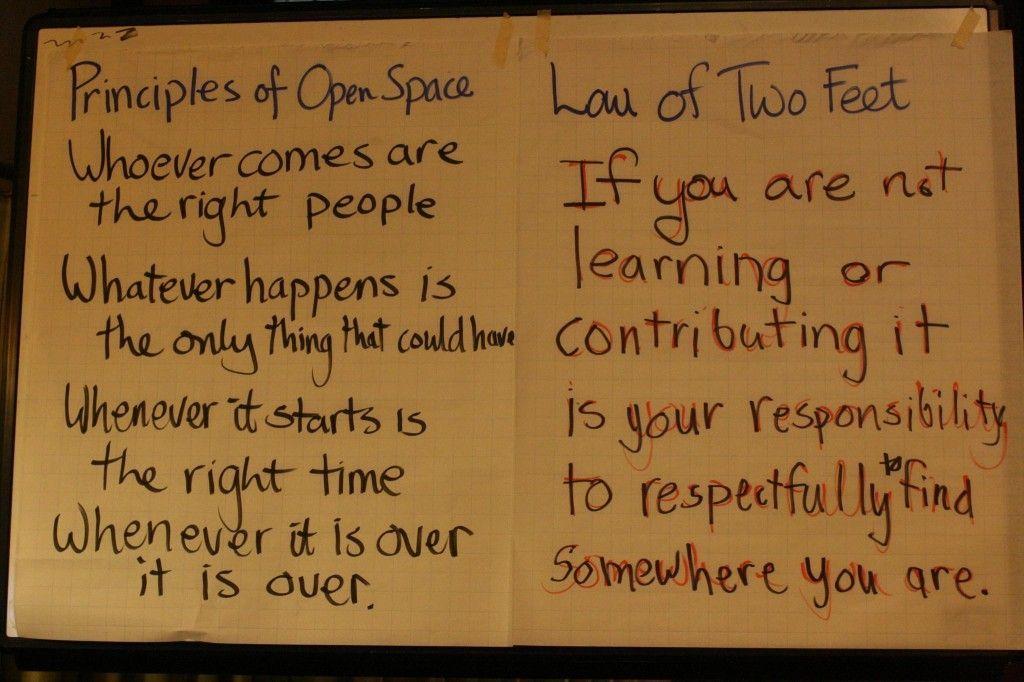 Principles of Open Space
Whoever comes are
the right people
Whatever happens is
the only thing that could have
Whenever it starts is
the right time
Whenever it is over
it is over.
Law of Two Feet
If you are not
learning or
contributing it
is your responsibility
to respectfully to find
somewhere you are.